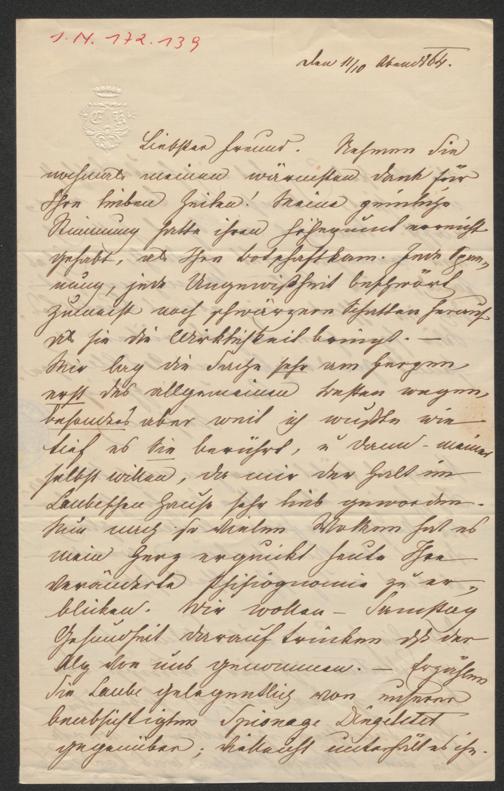 I.N. 172.139
Den 11/10 Abends 64.
Liebster Freund. Nehmen Sie
nochmals meinen wärmsten Dank für
Ihre lieben Zeilen! Meine peinliche
Stimmung hatte ihren Höhepunkt erreicht
gehabt, als Ihre Botschaft kam. Jede Span-
nung, jede Ungewißheit beschwört
zumeist noch schwärzere Schatten herauf
als sie die Wirklichkeit bringt. —
Mir lag die Sache sehr am Herzen,
erst des allgemeinen Besten wegen,
besonders aber weil ich wußte wie
tief es Sie berührt, u dann – meiner
selbst willen, da mir der Halt im
Laubeschen Hause sehr lieb geworden.
Nun nach so vielen Wolken hat es
mein Herz erquickt heute Ihre
veränderte Phisiognomie zu er-
blicken. Wir wollen – Samstag
Gesundheit darauf trinken daß der
Alp von uns genommen. — Erzählen
Sie Laube gelegentlich von unserer
beabsichtigten Spionage Dingelstedt
gegenüber; vielleicht unterhält es ihn.